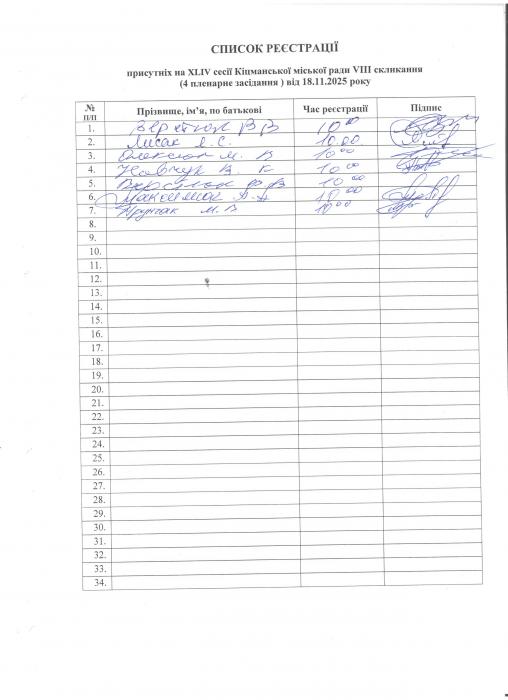 СПИСОК РЕЄСТРАЦІЇ
присутніх на XLIV сесії Кіцманської міської ради VIII скликання
(4 пленарне засідання ) від 18.11.2025 року
№ п/п Прізвище, ім'я, по батькові Час реєстрації Підпис
1. В В 10 00
2. Лисак Л. С. 10.00
3. М. В 10 00
4. В. 10 00
5. В 10 00
6. 10 00
7. М. В 10 00
8.
9.
10.
11.
12.
13.
14.
15.
16.
17.
18.
19.
20.
21.
22.
23.
24.
25.
26.
27.
28.
29.
30.
31.
32.
33.
34.